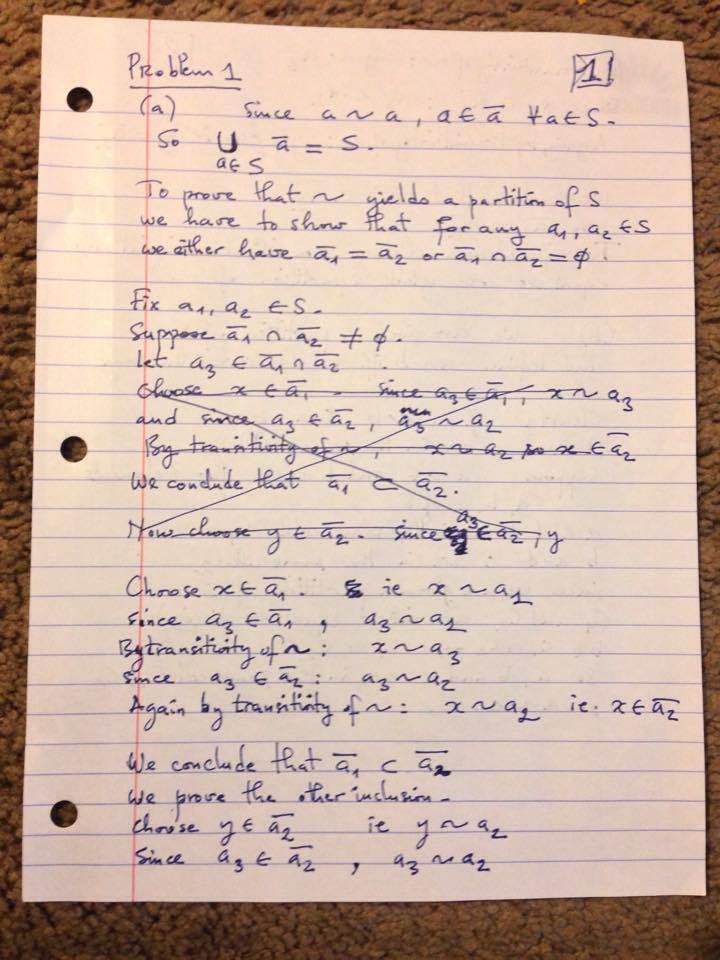 Problem 1 1
(a) Since a ~ a, a ∈ a̅ ∀a∈S.
So ∪ a̅ = S.
a∈S
To prove that ~ yields a partition of S
we have to show that for any a₁, a₂ ∈ S
we either have a̅₁ = a̅₂ or a̅₁ ∩ a̅₂ = ∅
Fix a₁, a₂ ∈ S.
Suppose a̅₁ ∩ a̅₂ ≠ ∅.
Let a₃ ∈ a̅₁ ∩ a̅₂
Choose x ∈ a̅₁. Since a₃ ∈ a̅₁, x ~ a₃
and since a₃ ∈ a̅₂, a₃ ~ a₂
By transitivity of ~, x ~ a₂ so x ∈ a̅₂
We conclude that a̅₁ ⊂ a̅₂.
Now choose y ∈ a̅₂. Since a₃ ∈ a̅₂, y
Choose x ∈ a̅₁. ie x ~ a₁
Since a₃ ∈ a̅₁, a₃ ~ a₁
By transitivity of ~: x ~ a₃
Since a₃ ∈ a̅₂: a₃ ~ a₂
Again by transitivity of ~: x ~ a₂ ie. x ∈ a̅₂
We conclude that a̅₁ ⊂ a̅₂
We prove the other inclusion.
Choose y ∈ a̅₂ ie y ~ a₂
Since a₃ ∈ a̅₂, a₃ ~ a₂